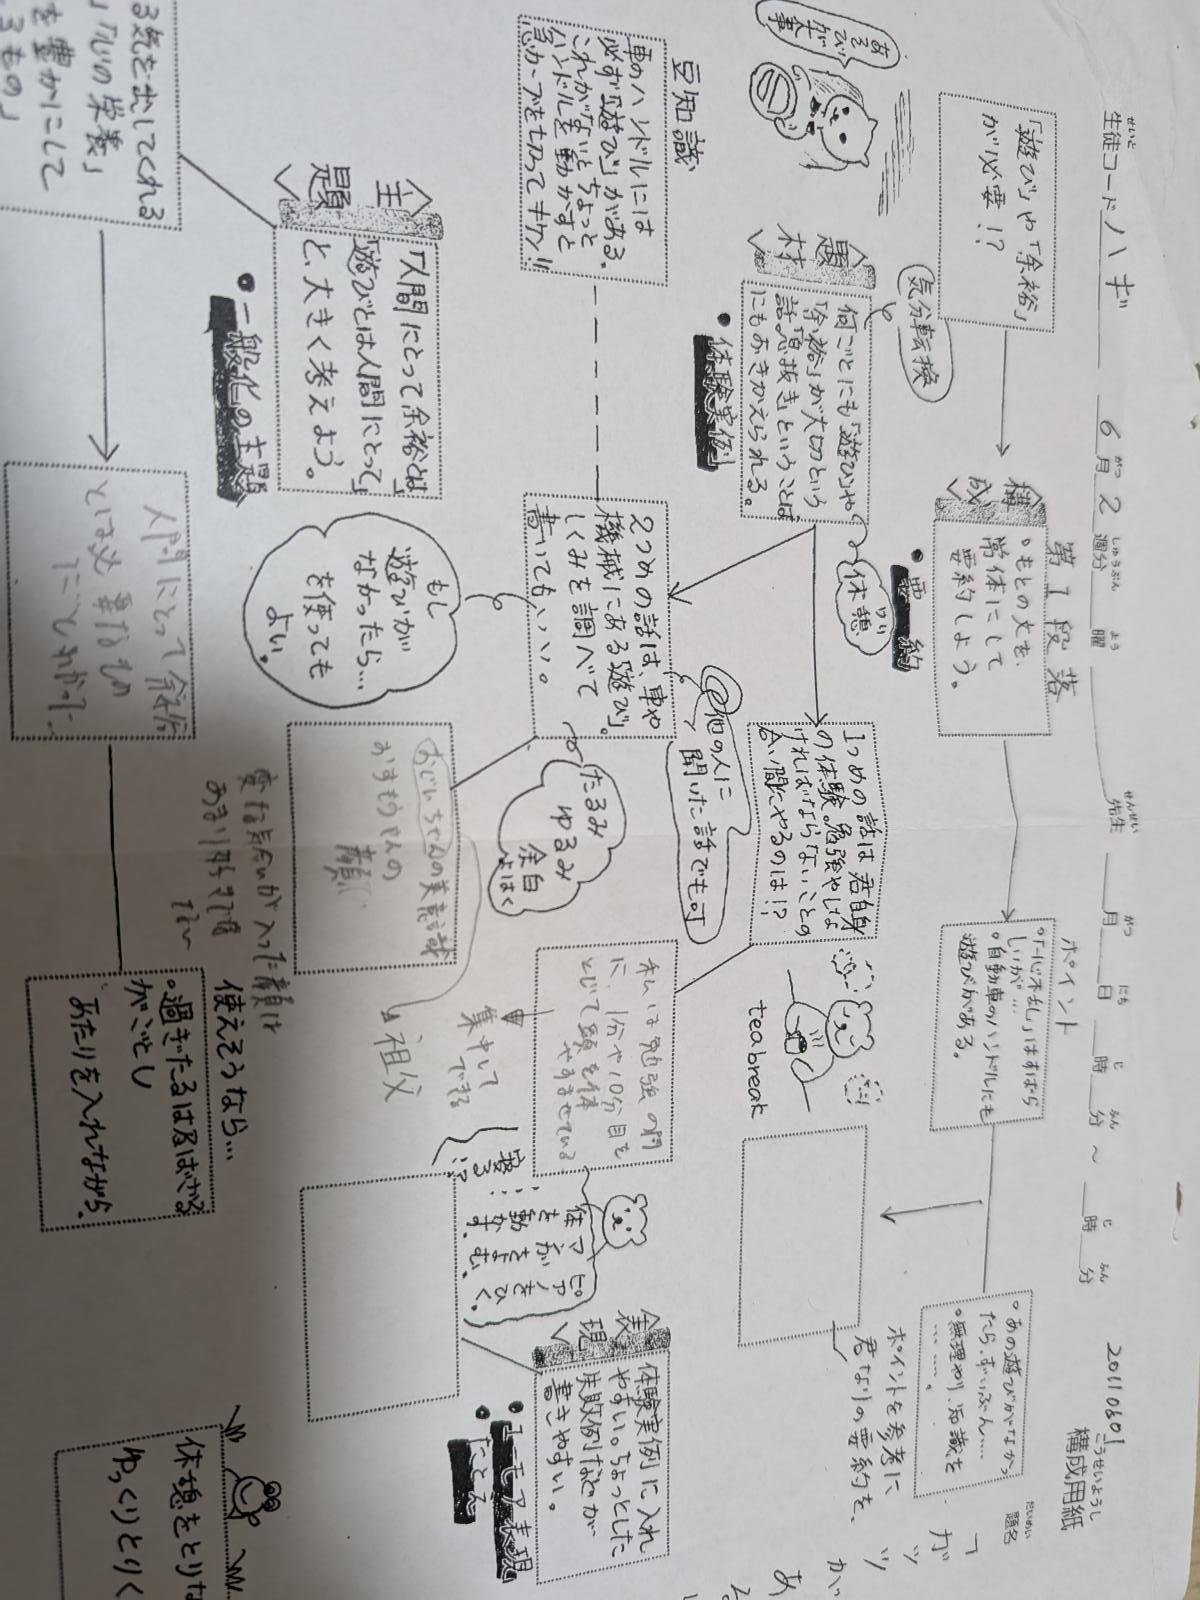 20110601
構成用紙
こうせいようし
生徒コード ハギ
せいと
6月2週分 曜 先生 月 日 時 分 ～ 時 分
がつ しゅうぶん よう せんせい がつ にち じ ふん じ ふん
題名
だいめい
「遊び」や「余裕」
が必要!?
あそびが大事
構成
第1段落
。もとの文を、
常体にして
要約しよう。
・要約
ポイント
。「一心不乱」はすばら
しいが…
。自動車のハンドルにも
遊びがある。
。あの遊びがなかっ
たら、ずいぶん…
。無理やり知識を
………。
ポイントを参考に
君なりの要約を。
題材
気分転換
何ごとにも「遊び」や
「余裕」が大切という
話。「息抜き」ということば
にもおきかえられる。
・体験実例
休憩
1つめの話は君自身
の体験。勉強やしな
ければならないことの
合い間にやるのは!?
他の人に
聞いた話でも可
teabreak
私は勉強の間
に、1分や10分目を
とじて頭を休
やすませている
集中して
できる
寝る!?
体を動かす。
マンガをよむ。
ピアノをひく。
豆知識
車のハンドルには
必ず「遊び」がある。
これがないとちょっと
ハンドルを動かすと
急カーブを切ってキケン!!
2つめの話は、車や
機械にある「遊び」。
しくみを調べて
書いてもいい。
たるみ
ゆるみ
余白
よはく
もし
遊びが
なかったら…
を使っても
よい。
おじいちゃんの美意識
おすもうさんの
祖父
変な気合いが入った顔は
表現
体験実例に入れ
やすい。ちょっとした
失敗例などが
書きやすい。
・ユーモア表現
・たとえ
主題
「人間にとって余裕とは」
「遊びとは人間にとって」
と、大きく考えよう。
・一般化の主題
る気を出してくれる
」「心の栄養」
を豊かにして
るもの」
人間にとって余裕
とは必要なもの
だとわかった
使えそうなら…
。過ぎたるは及ばざる
がごとし
あたりを入れながら、
休憩をとりな
ゆっくりとりく